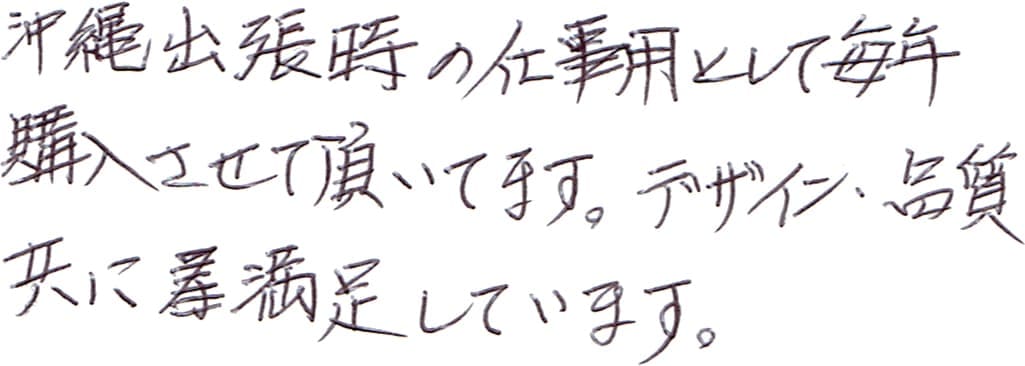 沖縄出張時の仕事用として毎年
購入させて頂いてます。デザイン・品質
共に満足しています。